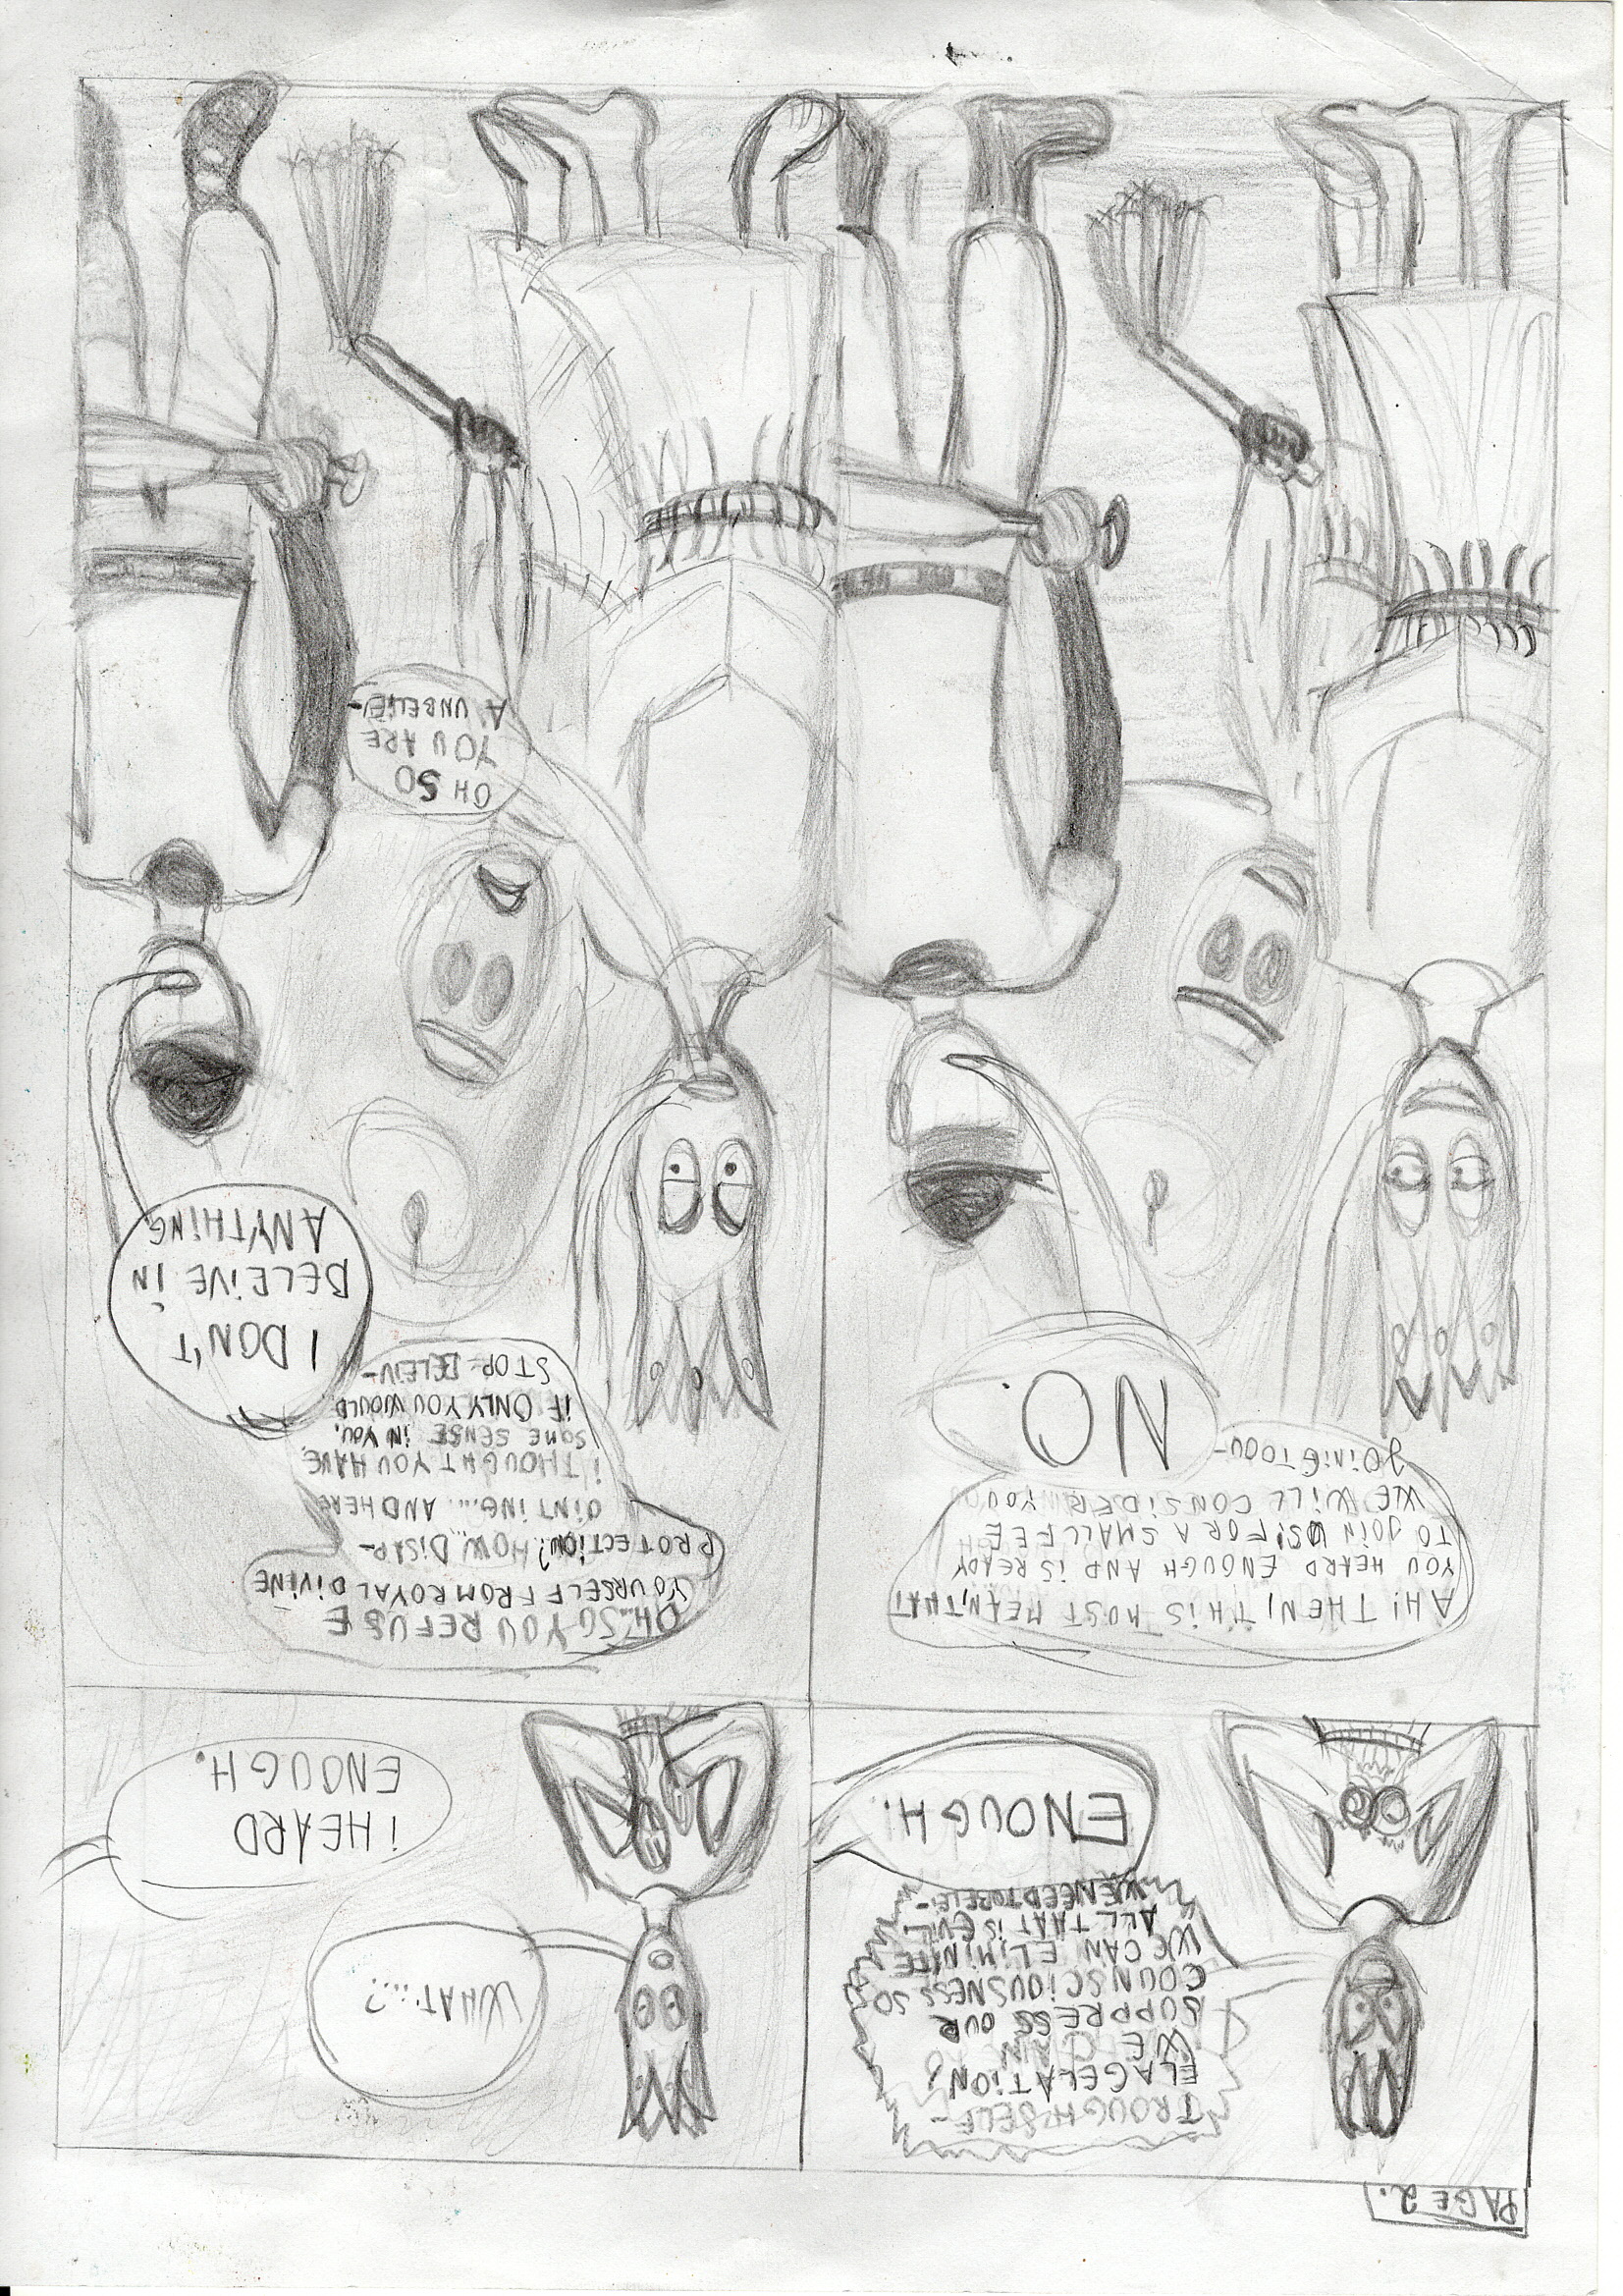 PAGE 2.
TROUGH SELF-
FLAGELATION,
WE CAN
SUPPRESS OUR
COUNSCIOUSNESS SO
WE CAN ELIMINATE
ALL THAT IS EVIL.
WE NEED TO BELEI-
ENOUGH.
WHAT...?
I HEARD
ENOUGH.
AH! THEN, THIS MUST MEAN, THAT
YOU HEARD ENOUGH AND IS READY
TO JOIN US! FOR A SMALL FEE
WE WILL CONSIDER YOU
JOINIG TO OU-
NO.
OH... SO YOU REFUSE
YOURSELF FROM ROYAL DIVINE
PROTECTION? HOW... DISAP-
OINTING.... AND HERE
I THOUGHT YOU HAVE
SOME SENSE IN YOU.
IF ONLY YOU WOULD
STOP BELEIV-
I DON'T
BELEIVE IN
ANYTHING
OH SO
YOU ARE
A UNBELIEI-